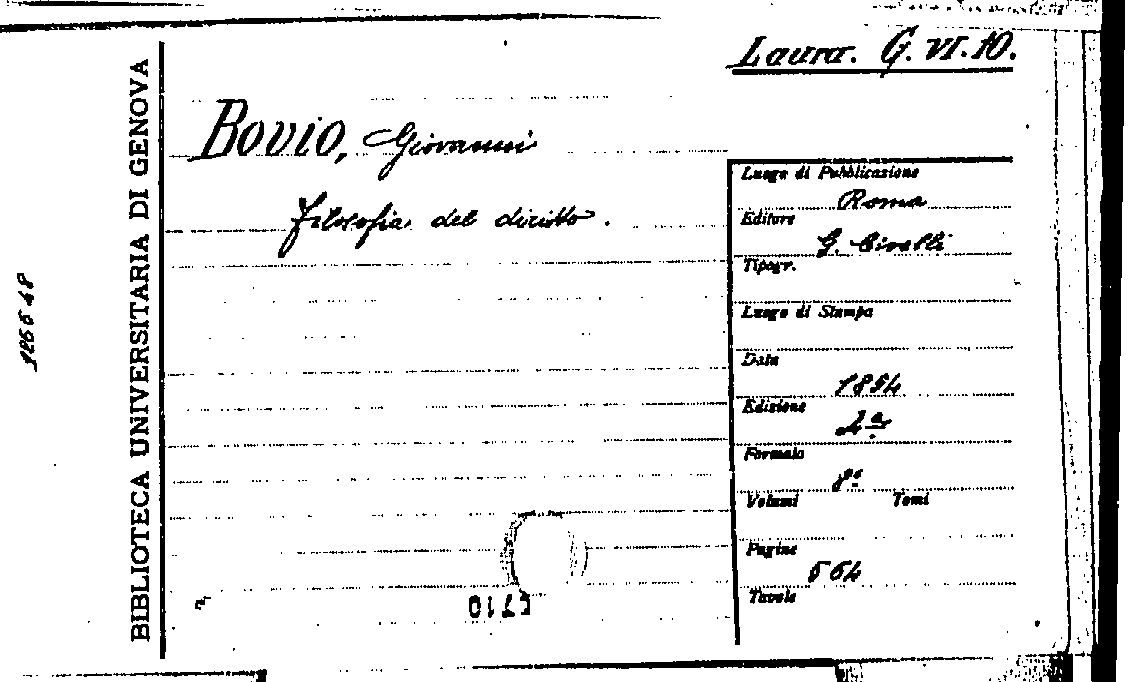 Laura. G. VI. 10.
BIBLIOTECA UNIVERSITARIA DI GENOVA
BOVIO, Giovanni
Filosofia del diritto.
Luogo di Pubblicazione
Roma
Editore
G. Civelli
Tipogr.
Luogo di Stampa
Data
1894
Edizione
4ª
Formato
8º
Volumi Tomi
Pagine
564
Tavole